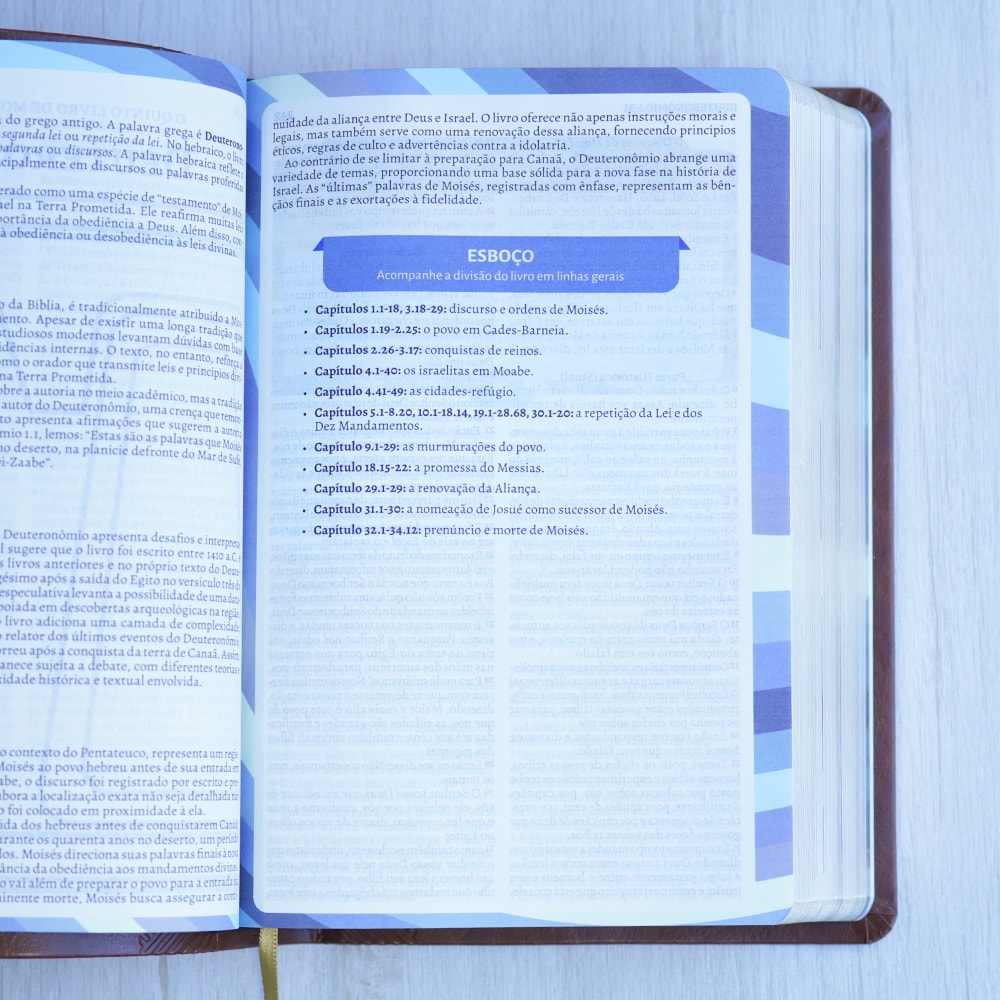 do grego antigo. A palavra grega é Deuterono-
segunda lei ou repetição da lei. No hebraico, o livro
palavras ou discursos. A palavra hebraica reflete o
cipalmente em discursos ou palavras proferidas
erado como uma espécie de “testamento” de Moi-
uel na Terra Prometida. Ele reafirma muitas leis
portância da obediência a Deus. Além disso, con-
à obediência ou desobediência às leis divinas.
o da Bíblia, é tradicionalmente atribuído a Moi-
mento. Apesar de existir uma longa tradição que
studiosos modernos levantam dúvidas com base
idências internas. O texto, no entanto, reforça a
omo o orador que transmite leis e princípios divi-
na Terra Prometida.
obre a autoria no meio acadêmico, mas a tradição
autor do Deuteronômio, uma crença que remon-
to apresenta afirmações que sugerem a autoria
mio 1.1, lemos: “Estas são as palavras que Moisés
no deserto, na planície defronte do Mar de Sufe,
i-Zaabe”.
Deuteronômio apresenta desafios e interpreta-
l sugere que o livro foi escrito entre 1410 a.C. e
s livros anteriores e no próprio texto do Deute-
gésimo após a saída do Egito no versículo três do
especulativa levanta a possibilidade de uma data
poiada em descobertas arqueológicas na região.
livro adiciona uma camada de complexidade,
o relator dos últimos eventos do Deuteronômio,
orreu após a conquista da terra de Canaã. Assim,
anece sujeita a debate, com diferentes teorias e
xidade histórica e textual envolvida.
o contexto do Pentateuco, representa um regis-
Moisés ao povo hebreu antes de sua entrada em
abe, o discurso foi registrado por escrito e pre-
mbora a localização exata não seja detalhada na
o foi colocado em proximidade à ela.
ida dos hebreus antes de conquistarem Canaã
urante os quarenta anos no deserto, um período
dos. Moisés direciona suas palavras finais à nova
tância da obediência aos mandamentos divinos.
o vai além de preparar o povo para a entrada na
minente morte, Moisés busca assegurar a conti-
nuidade da aliança entre Deus e Israel. O livro oferece não apenas instruções morais e
legais, mas também serve como uma renovação dessa aliança, fornecendo princípios
éticos, regras de culto e advertências contra a idolatria.
Ao contrário de se limitar à preparação para Canaã, o Deuteronômio abrange uma
variedade de temas, proporcionando uma base sólida para a nova fase na história de
Israel. As “últimas” palavras de Moisés, registradas com ênfase, representam as bên-
çãos finais e as exortações à fidelidade.
ESBOÇO
Acompanhe a divisão do livro em linhas gerais
• Capítulos 1.1-18, 3.18-29: discurso e ordens de Moisés.
• Capítulos 1.19-2.25: o povo em Cades-Barneia.
• Capítulos 2.26-3.17: conquistas de reinos.
• Capítulo 4.1-40: os israelitas em Moabe.
• Capítulo 4.41-49: as cidades-refúgio.
• Capítulos 5.1-8.20, 10.1-18.14, 19.1-28.68, 30.1-20: a repetição da Lei e dos
Dez Mandamentos.
• Capítulo 9.1-29: as murmurações do povo.
• Capítulo 18.15-22: a promessa do Messias.
• Capítulo 29.1-29: a renovação da Aliança.
• Capítulo 31.1-30: a nomeação de Josué como sucessor de Moisés.
• Capítulo 32.1-34.12: prenúncio e morte de Moisés.